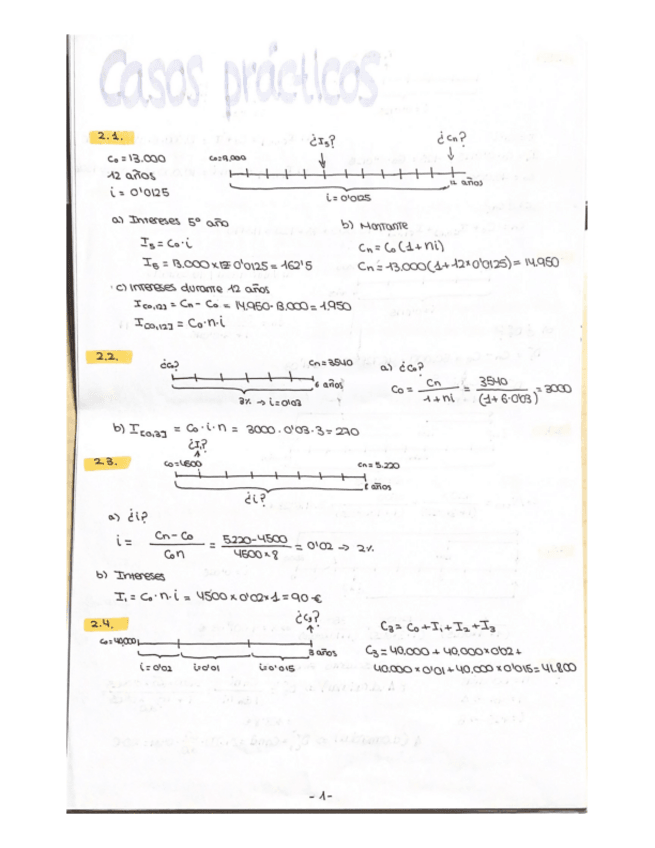 Casos prácticos
2.1.
C₀ = 13.000
12 años
i = 0'0125
C₀=13.000
¿I₅?
¿Cn?
12 años
i = 0'0125
a) Intereses 5º año
I₅ = C₀·i
I₅ = 13.000 x 0'0125 = 162'5
b) Montante
Cn = C₀(1+ni)
Cn = 13.000(1+12*0'0125) = 14.950
c) Intereses durante 12 años
I[0,12] = Cn - C₀ = 14.950-13.000 = 1.950
I[0,12] = C₀·n·i
2.2.
¿C₀?
Cn = 3540
6 años
3% → i=0'03
a) ¿C₀?
C₀ = Cn / 1+ni = 3540 / (1+6·0'03) = 3000
b) I[0,3] = C₀·i·n = 3000·0'03·3 = 270
2.3.
¿I₁?
C₀=4500
Cn = 5.220
8 años
¿i?
a) ¿i?
i = Cn-C₀ / C₀n = 5.220-4500 / 4500x8 = 0'02 → 2%
b) Intereses
I₁ = C₀·n·i = 4500x0'02x1 = 90 €
2.4.
C₀=40.000
¿C₃?
3 años
i=0'02 i=0'01 i=0'015
C₃ = C₀+I₁+I₂+I₃
C₃ = 40.000 + 40.000x0'02 +
40.000x0'01+40.000x0'015=41.800
-1-